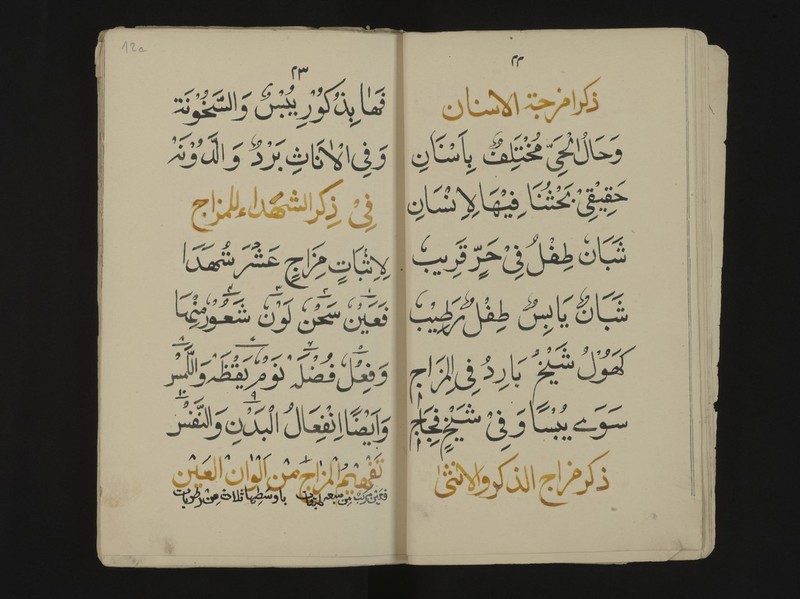 ٢٢
ذكر امزجة الاسنان
وَحَالُ الْحَيِّ مُخْتَلِفٌ بِاَسْنَانِ
حَقِيْقِيْ بَحْثُنَا فِيْهَا لِاِنْسَانِ
شَبَانٌ طِفْلٌ فِيْ حَرٍّ قَرِيب
شَبَانٌ يَابِسٌ طِفْلٌ رَطِيْب
كَهَوْلٌ شَيْخٌ بَارِدٌ فِي الْمِزَاجِ
سَوَے يُبْسًا وَفِيْ شَيْخٍ فِجَاجِ
ذكر مزاج الذكر والانثى
12a
٢٣
فَهَا بِذُكُوْرٍ يُبْسٌ وَالسَّخُوْنَة
وَفِي الْاَنَاثِ بَرْدٌ وَالَّدُوْنَة
فِيْ ذِكر الشهداء للمزاج
لِاِثْبَاتِ مِزَاجٍ عَشْرَ شُهَدَا
١ ٢ ٣ ٤
فَعَيْن سَحْن لَوْن شَعُوْر مِنْهَا
٥ ٦ ٧ ٨
وَفِعْل فُضْلَة نَوْم يَقْظَة وَاللَّمْس
٩ ١٠
وَاَيْضًا اِنْفِعَالُ الْبَدْنِ وَالنَّفْس
تَفْهِيْمُ الْمِزَاج مِنْ اَلْوَان العَيْن
من سبعة طبقات باوسطها ثلاث من رطوبات